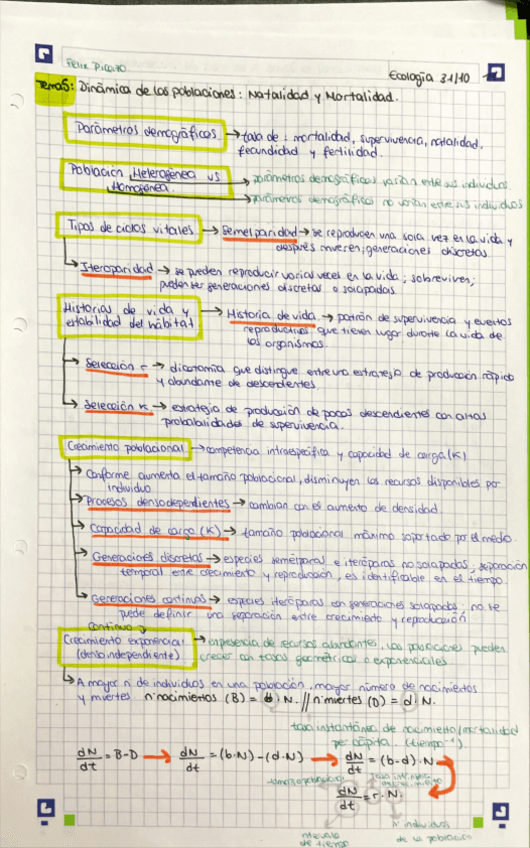 Felix Picazo
Ecología 31/10
Tema 5: Dinámica de las poblaciones: Natalidad y Mortalidad.
Parámetros demográficos → tasa de: mortalidad, supervivencia, natalidad,
fecundidad y fertilidad.
Población Heterogénea vs → parámetros demográficos varían entre sus individuos
Homogénea. → parámetros demográficos no varían entre sus individuos
Tipos de ciclos vitales → Semelparidad → se reproducen una sola vez en la vida y
después mueren; generaciones discretas.
→ Iteroparidad → se pueden reproducir varias veces en la vida; sobreviven;
pueden ter generaciones discretas o solapadas.
Historias de vida y → Historia de vida → patrón de supervivencia y eventos
estabilidad del hábitat reproductivos, que tienen lugar durante la vida de
los organismos.
→ Selección r → dicotomía que distingue entre una estrategia de producción rápida
y abundante de descendentes
→ Selección K → estrategia de producción de pocos descendientes con altas
probabilidades de supervivencia.
Crecimiento poblacional → competencia intraespecífica y capacidad de carga (K)
→ Conforme aumenta el tamaño poblacional, disminuyen los recursos disponibles por
individuo
→ Procesos densodependientes → cambian con el aumento de densidad.
→ Capacidad de carga (K) → tamaño poblacional máximo soportado por el medio.
→ Generaciones discretas → especies semélparas e iteróparas no solapadas, separación
temporal entre crecimiento y reproducción, es identificable en el tiempo.
→ Generaciones continuas → especies iteróparas con generaciones solapadas, no se
puede definir una separación entre crecimiento y reproducción
continuo
Crecimiento exponencial → en presencia de recursos abundantes, las poblaciones pueden
(densoindependiente) crecer con tasas geométricas o exponenciales
→ A mayor n de individuos en una población, mayor número de nacimientos
y muertes. nº nacimientos (B) = b · N. // nº muertes (D) = d · N.
tasa instantánea de nacimiento/mortalidad
per cápita (tiempo⁻¹)
dN/dt = B-D → dN/dt = (b·N)-(d·N) → dN/dt = (b-d)·N
dN/dt = r·N.
nº individuos
de la población
intervalo
de tiempo